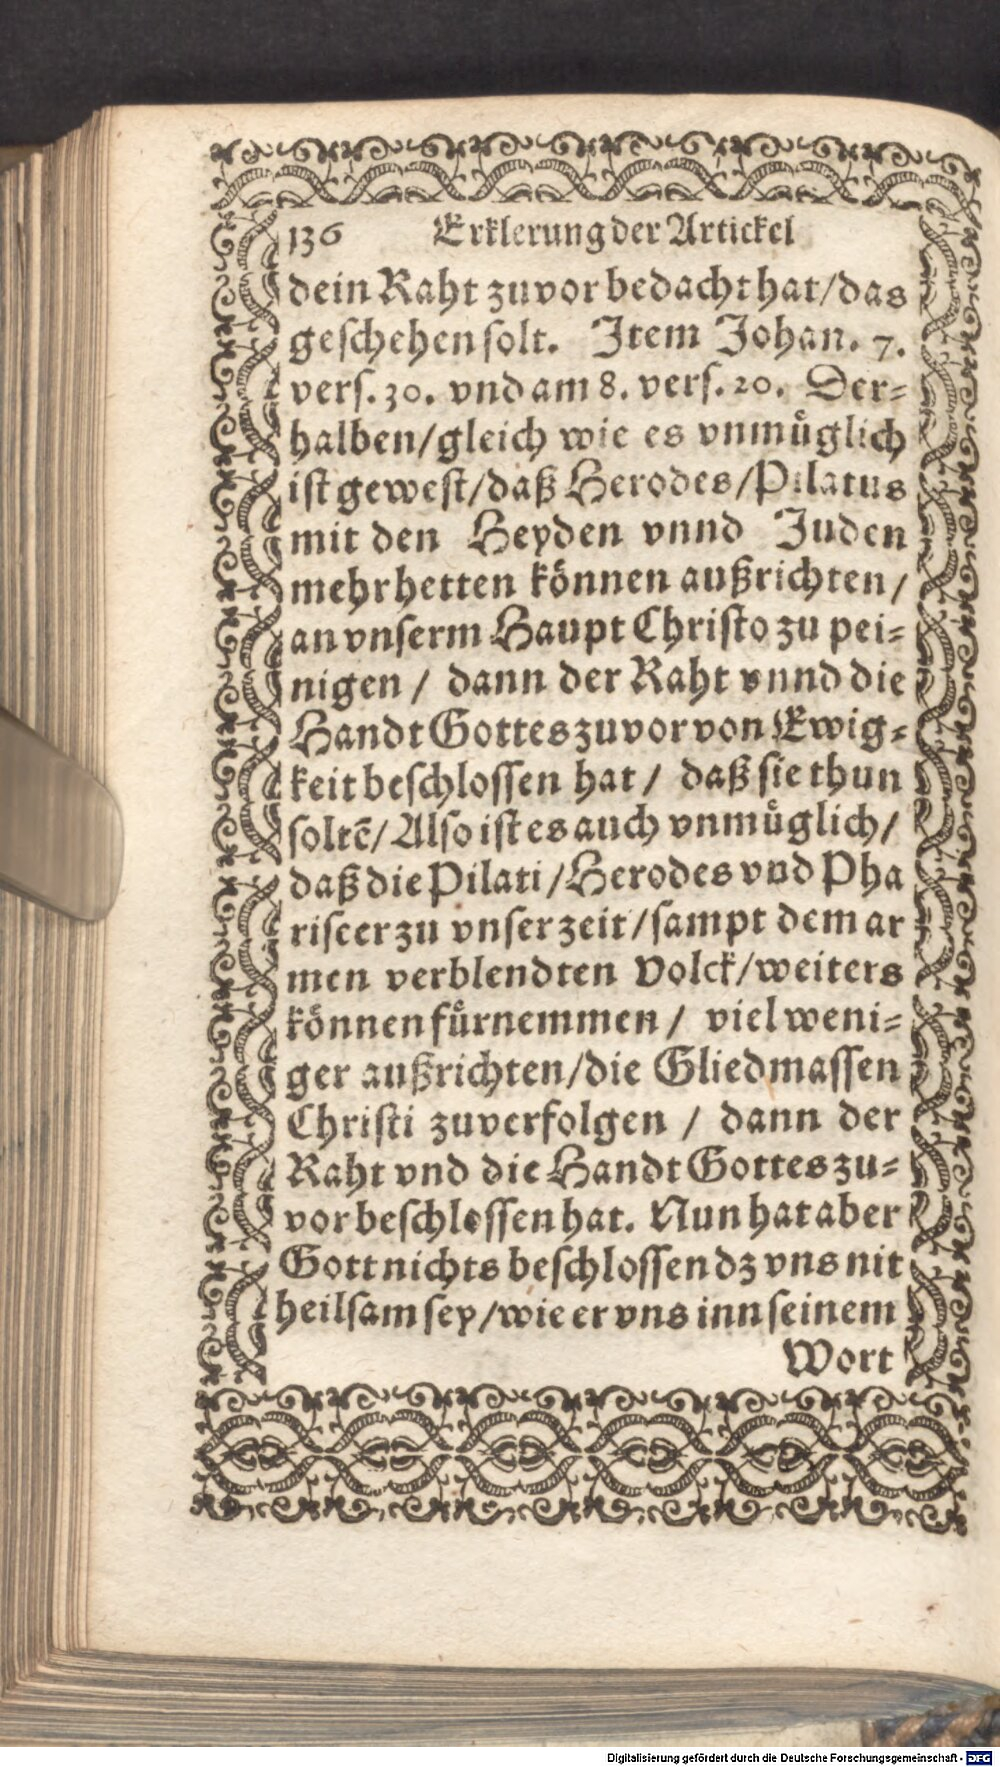 136 Erklerung der Artickel
dein Raht zuvor bedacht hat/das
geschehen solt. Item Johan. 7.
vers. 30. vnd am 8. vers. 20. Der⸗
halben/gleich wie es vnmüglich
ist gewest/daß Herodes/Pilatus
mit den Heyden vnnd Juden
mehr hetten können außrichten/
an vnserm Haupt Christo zu pei⸗
nigen/ dann der Raht vnnd die
Handt Gottes zuvor von Ewig⸗
keit beschlossen hat/ daß sie thun
soltē/Also ist es auch vnmüglich/
daß die Pilati/Herodes vnd Pha
riseer zu vnser zeit/sampt dem ar
men verblendten Volck/weiters
können fürnemmen/ viel weni⸗
ger außrichten/die Gliedmassen
Christi zuverfolgen/ dann der
Raht vnd die Handt Gottes zu⸗
vor beschlossen hat. Nun hat aber
Gott nichts beschlossen dz vns nit
heilsam sey/wie er vns inn seinem
Wort
Digitalisierung gefördert durch die Deutsche Forschungsgemeinschaft - DFG